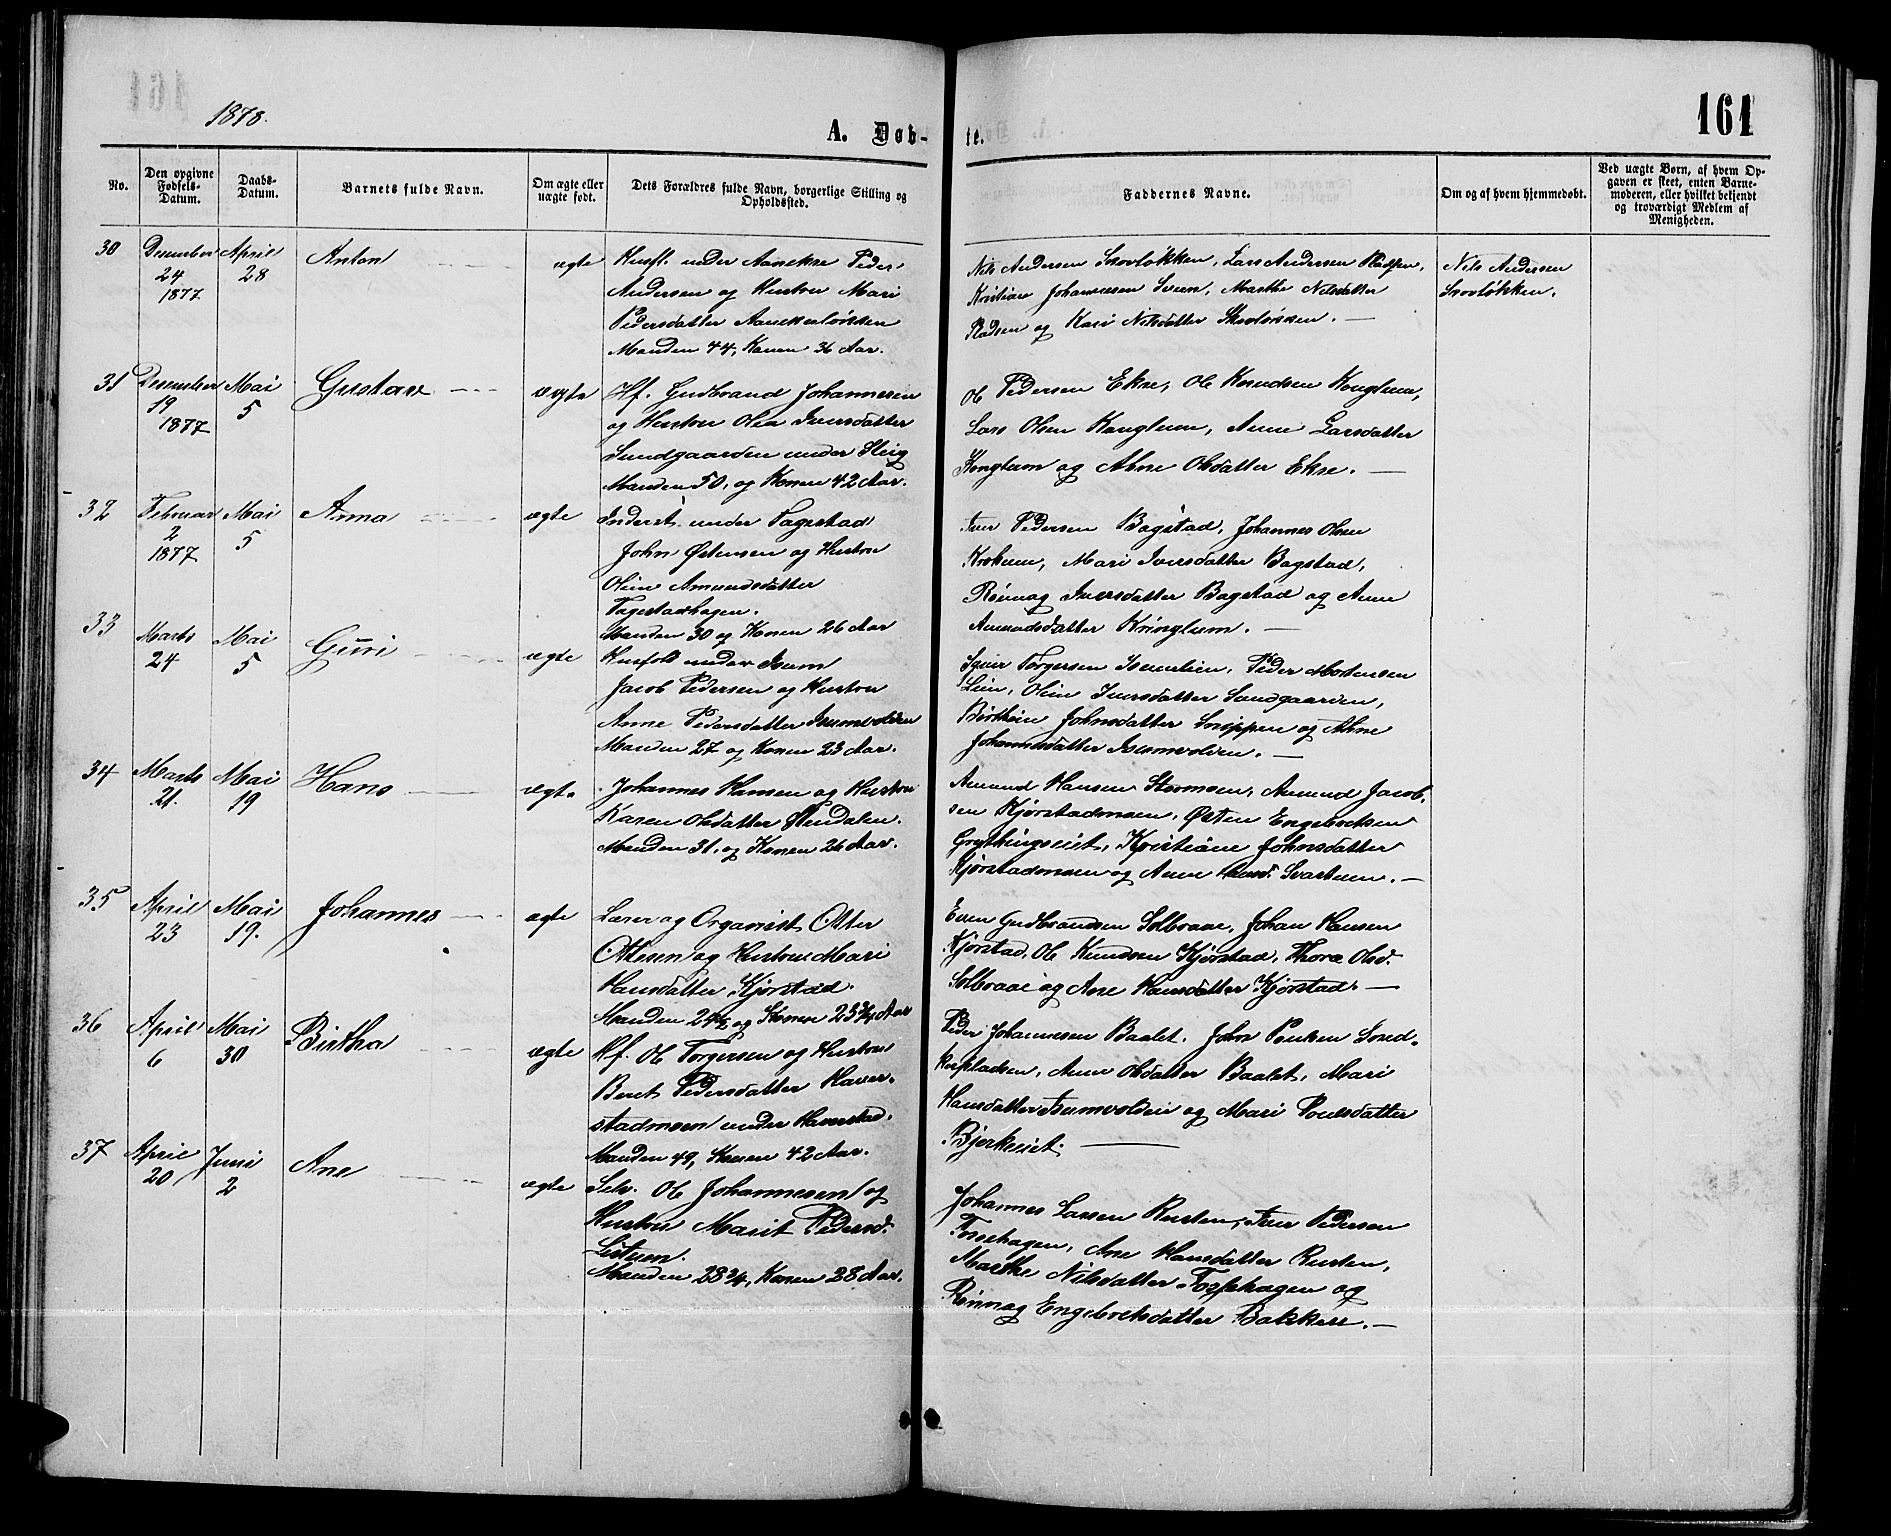 1878.
A. Døb-
te.
161
No.
Den opgivne Fødsels-Datum.
Daabs-Datum.
Barnets fulde Navn.
Om ægte eller uægte født.
Dets Forældres fulde Navn, borgerlige Stilling og Opholdssted.
Faddernes Navne.
Om og af hvem hjemmedøbt.
Ved uægte Børn, af hvem Opgaven er skeet, enten Barnemoderen, eller hvilket bekjendt og troværdigt Medlem af Menigheden.
30
Desember 24 1877
April 28
Anton
ægte
Husf. under Aanekre Peder
Andersen og Hustru Mari
Pedersdatter Aanekreløkken
Manden 44, Konen 36 Aar.
Nils Andersen Skovløkken, Lars Andersen Pladsen,
Kristian Johannesen Sveen, Marthe Nilsdatter
Pladsen og Kari Nilsdatter Skovløkken. —
Nils Andersen
Skovløkken.
31
Desember 19 1877
Mai 5
Gustav
ægte
Hf. Gudbrand Johannesen
og Hustru Olea Iversdatter
Sundgaarden under Steig
Manden 50, og Konen 42 Aar.
Ol Pedersen Ekre, Ole Knudsen Konglum,
Lars Olsen Konglum, Anne Larsdatter
Konglum og Ane Olsdatter Ekre. —
32
Februar 2 1877
Mai 5
Anna
ægte
Inderst under Fagestad
John Østensen og Hustru
Oline Amundsdatter
Fagestadhagen.
Manden 30 og Konen 26 Aar
Iver Pedersen Bagstad, Johannes Olsen
Mari Iversdatter Bagstad,
Rønnog Iversdatter Bagstad og Anne
Amundsdatter Kringlum. —
33
Marts 24
Mai 5
Guri
ægte
Husfolk under Isum
Jacob Pedersen og Hustru
Anne Pedersdatter Isumvolden
Manden 27 og Konen 23 Aar.
Syver Torgersen Isumlien, Peder Mortensen
Lien, Oline Iversdatter Sundgaarden,
Berthine Johnsdatter Snippen og Ane
Johannesdatter Isumvolden. —
34
Marts 21.
Mai 19
Hans
ægte
Johannes Hansen og Hustru
Karen Olsdatter Stendalen.
Manden 31, og Konen 26 Aar.
Amund Hansen Stormoen, Amund Jacob-
sen Kjørstadmoen, Østen Engebretsen
Grytthingsveit, Kristiane Johnsdatter
Kjørstadmoen og Anne Hansd. Svartuen. —
35
April 23
Mai 19.
Johannes
ægte
Lærer og Organist Otter
Ottesen og Hustru Mari
Hansdatter Kjørstad.
Manden 24½ og Konen 23¾ Aar
Even Gudbrandsen Solbraae, Johan Hansen
Kjørstad, Ole Knudsen Kjørstad, Thora Olsd.
Solbraae og Ane Hansdatter Kjørstad. —
36
April 6
Mai 30
Birtha
ægte
Hf. Ole Torgersen og Hustru
Beret Pedersdatter Haver-
stadmoen under Haverstad.
Manden 49, Konen 42 Aar.
Peder Johannesen Baalet, John Poulsen Smed-
Anne Olsdatter Baalet, Mari
Hansdatter Isumvolden og Mari Poulsdatter
Bjerkeeiet. —
37
April 20
Juni 2
Ane
ægte
Selv. Ole Johannesen og
Hustru Marit Pedersd.
Listuen.
Manden 28¾, Konen 28 Aar.
Johannes Larsen Rusten, Iver Pedersen
Fossehagen, Ane Hansdatter Rusten,
Marthe Nilsdatter Fossehagen og
Rønnog Engebretsdatter Bakken. —